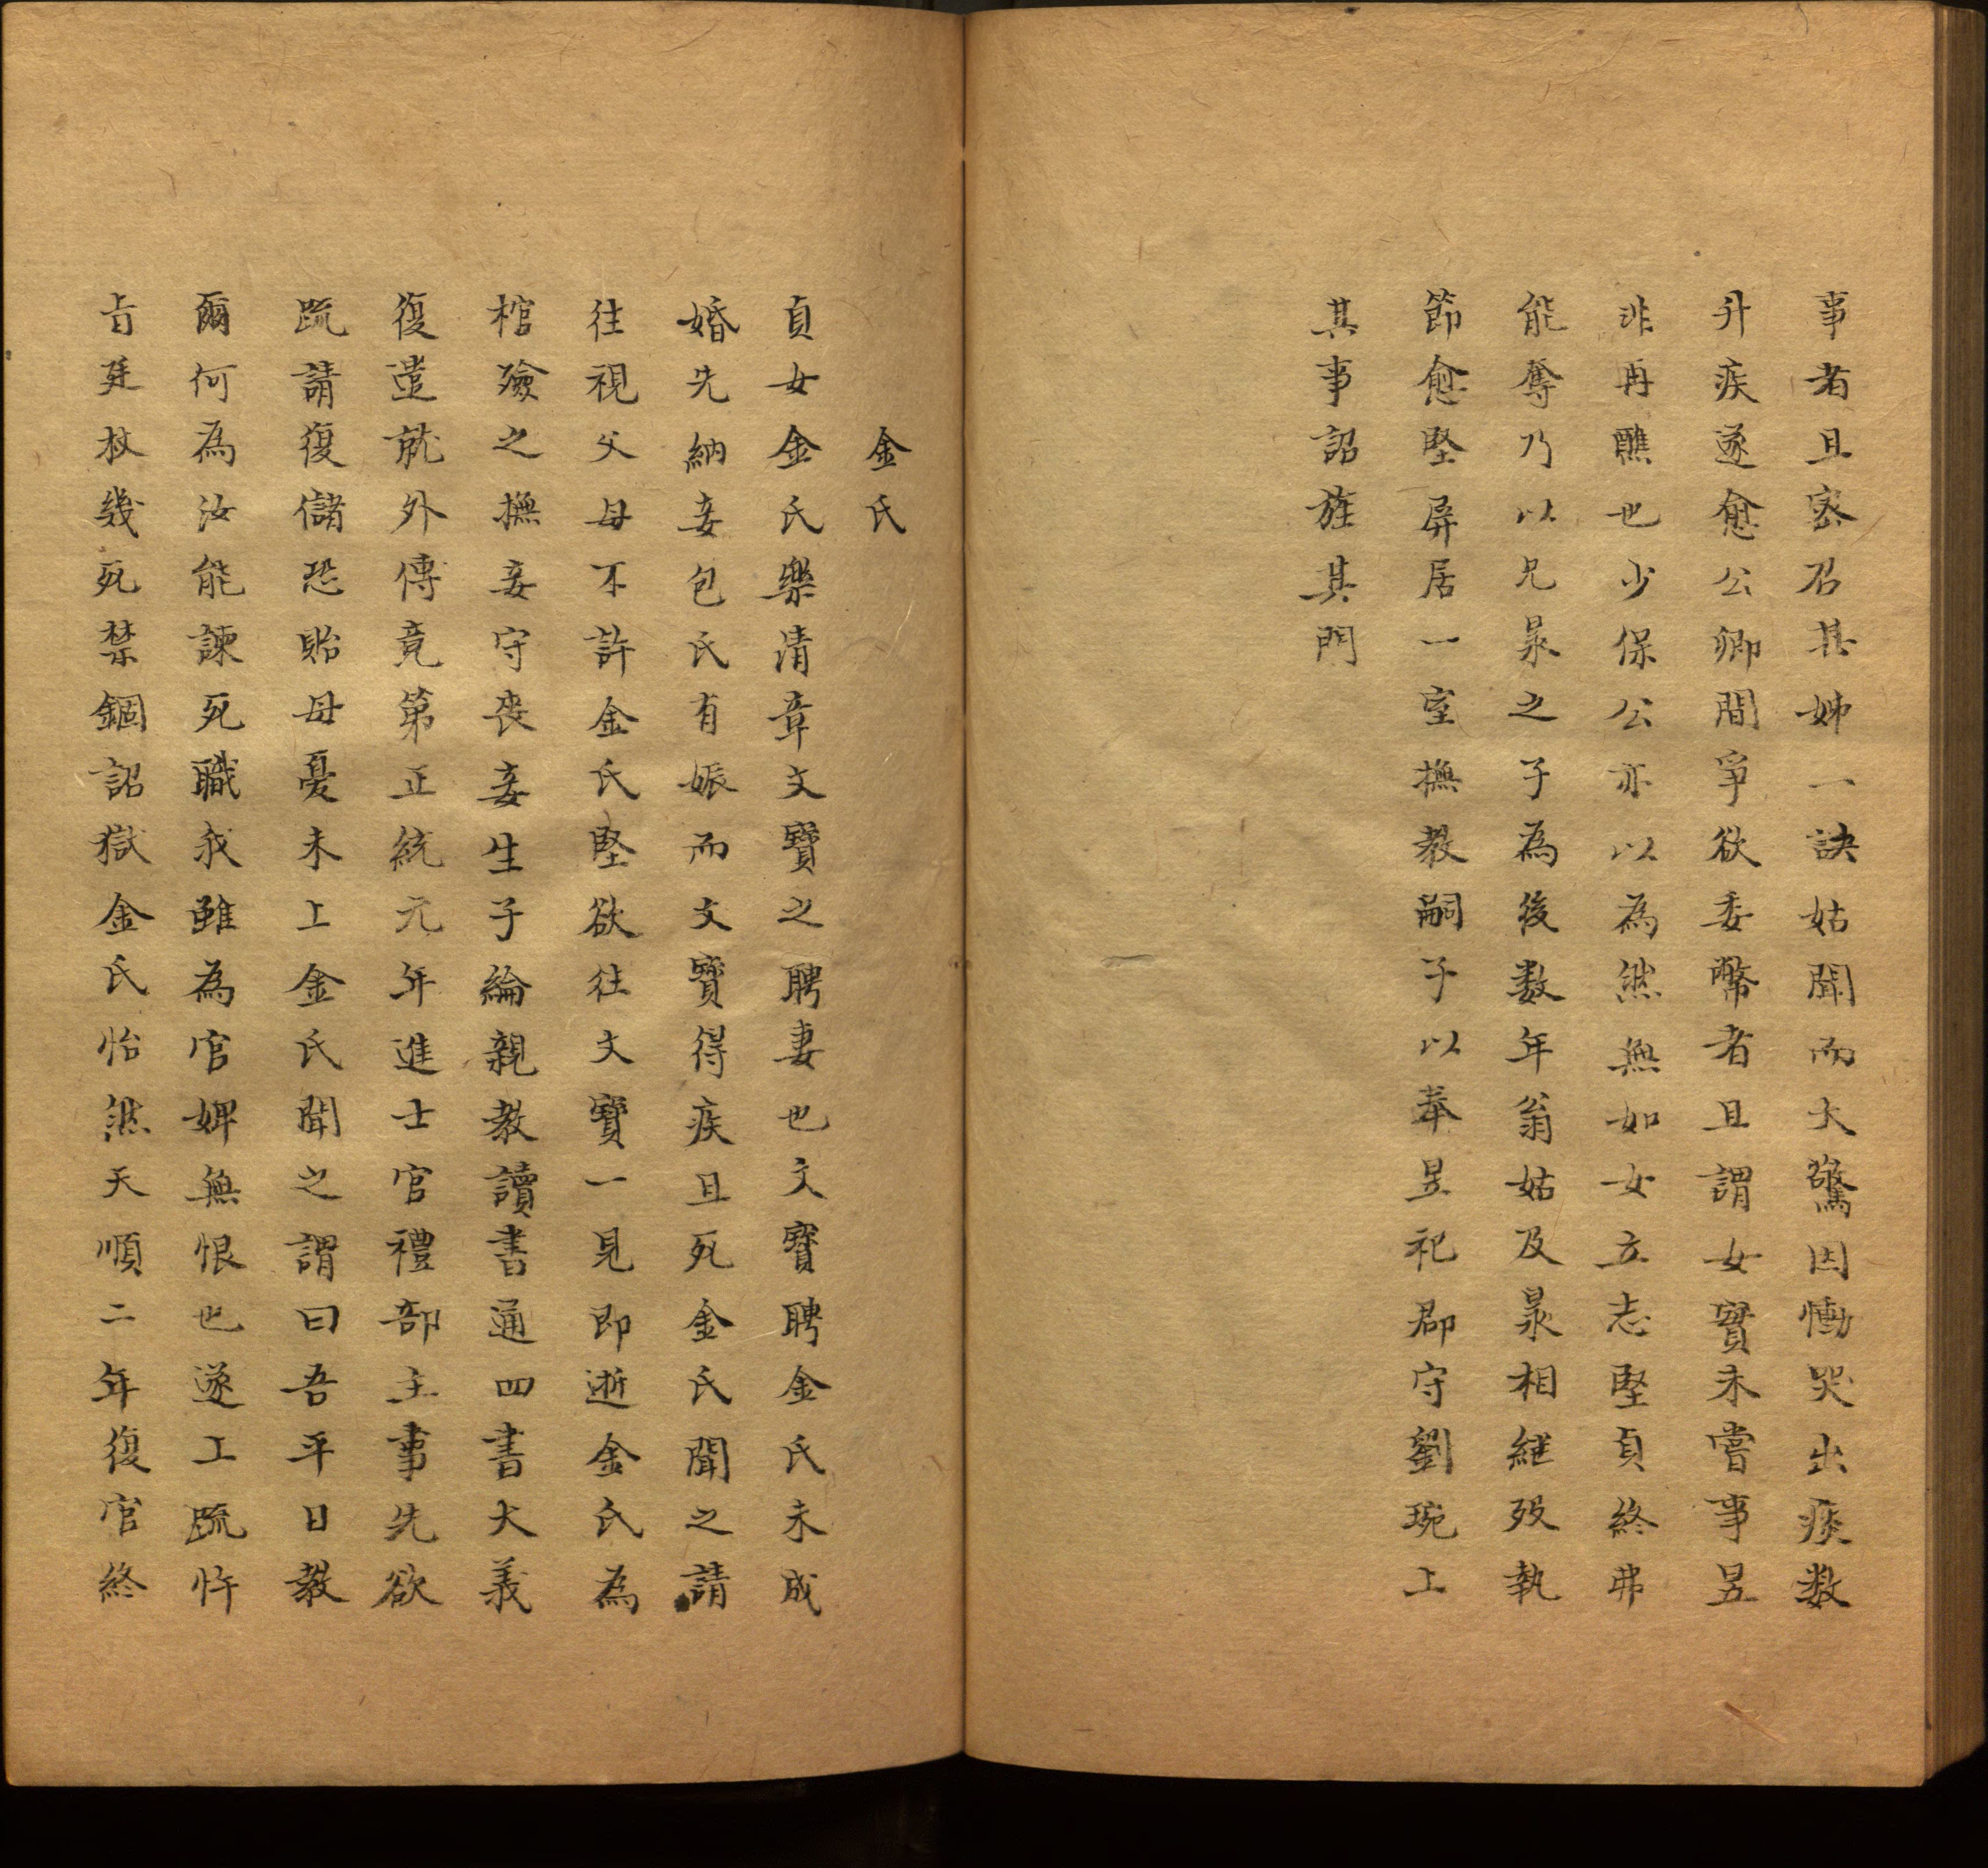 事者且密召其姊一訣姑聞而大驚因慟哭出痰数
升疾遂愈公卿間爭欲委幣者且謂女實未嘗事昱
非再醮也少保公亦以為然無如女立志堅貞終弗
能奪乃以兄昴之子為後数年翁姑及昴相継殁執
節愈堅屏居一室撫教嗣子以奉昱祀郡守劉琬上
其事詔旌其門
金氏
貞女金氏樂清章文寶之聘妻也文寶聘金氏未成
婚先納妾包氏有娠而文寶得疾且死金氏聞之請
往視父母不許金氏堅欲往文寶一見即逝金氏為
棺殮之撫妾守喪妾生子綸親教讀書通四書大義
復遣就外傳竟第正統元年進士官禮部主事先欲
疏請復儲恐貽母憂未上金氏聞之謂曰吾平日教
爾何為汝能諫死職我雖為官婢無恨也遂上疏忤
旨廷杖幾死禁錮詔獄金氏怡然天順二年復官終